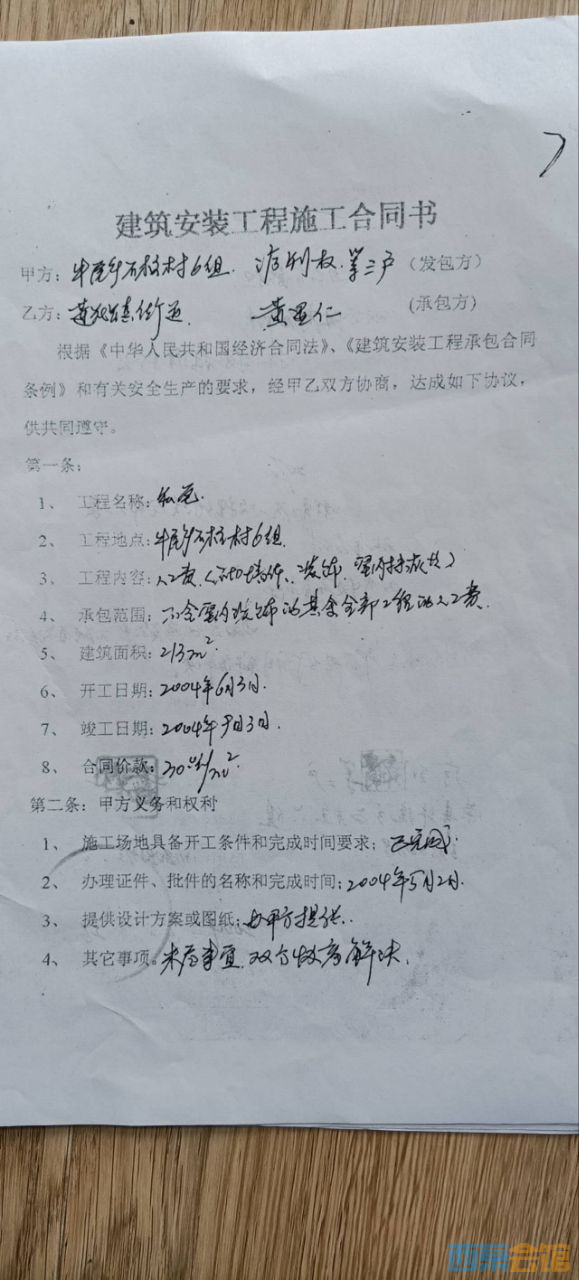 建筑安装工程施工合同书
甲方：牛尾乡石柱村6组. 等三户（发包方）
乙方： 黄显仁 （承包方）
根据《中华人民共和国经济合同法》、《建筑安装工程承包合同
条例》和有关安全生产的要求，经甲乙双方协商，达成如下协议，
供共同遵守。
第一条：
1、 工程名称：私宅.
2、 工程地点：牛尾乡石柱村6组.
3、 工程内容：人工费
4、 承包范围：不含室内装饰的其余全部工程的人工费.
5、 建筑面积：213m².
6、 开工日期：2004年6月3日.
7、 竣工日期：2004年9月3日.
8、 合同价款：/m²
第二条：甲方义务和权利
1、 施工场地具备开工条件和完成时间要求：已完成.
2、 办理证件、批件的名称和完成时间：2004年5月2日.
3、 提供设计方案或图纸：由甲方提供.
4、 其它事项。未尽事宜.双方协商解决.
西祠会馆